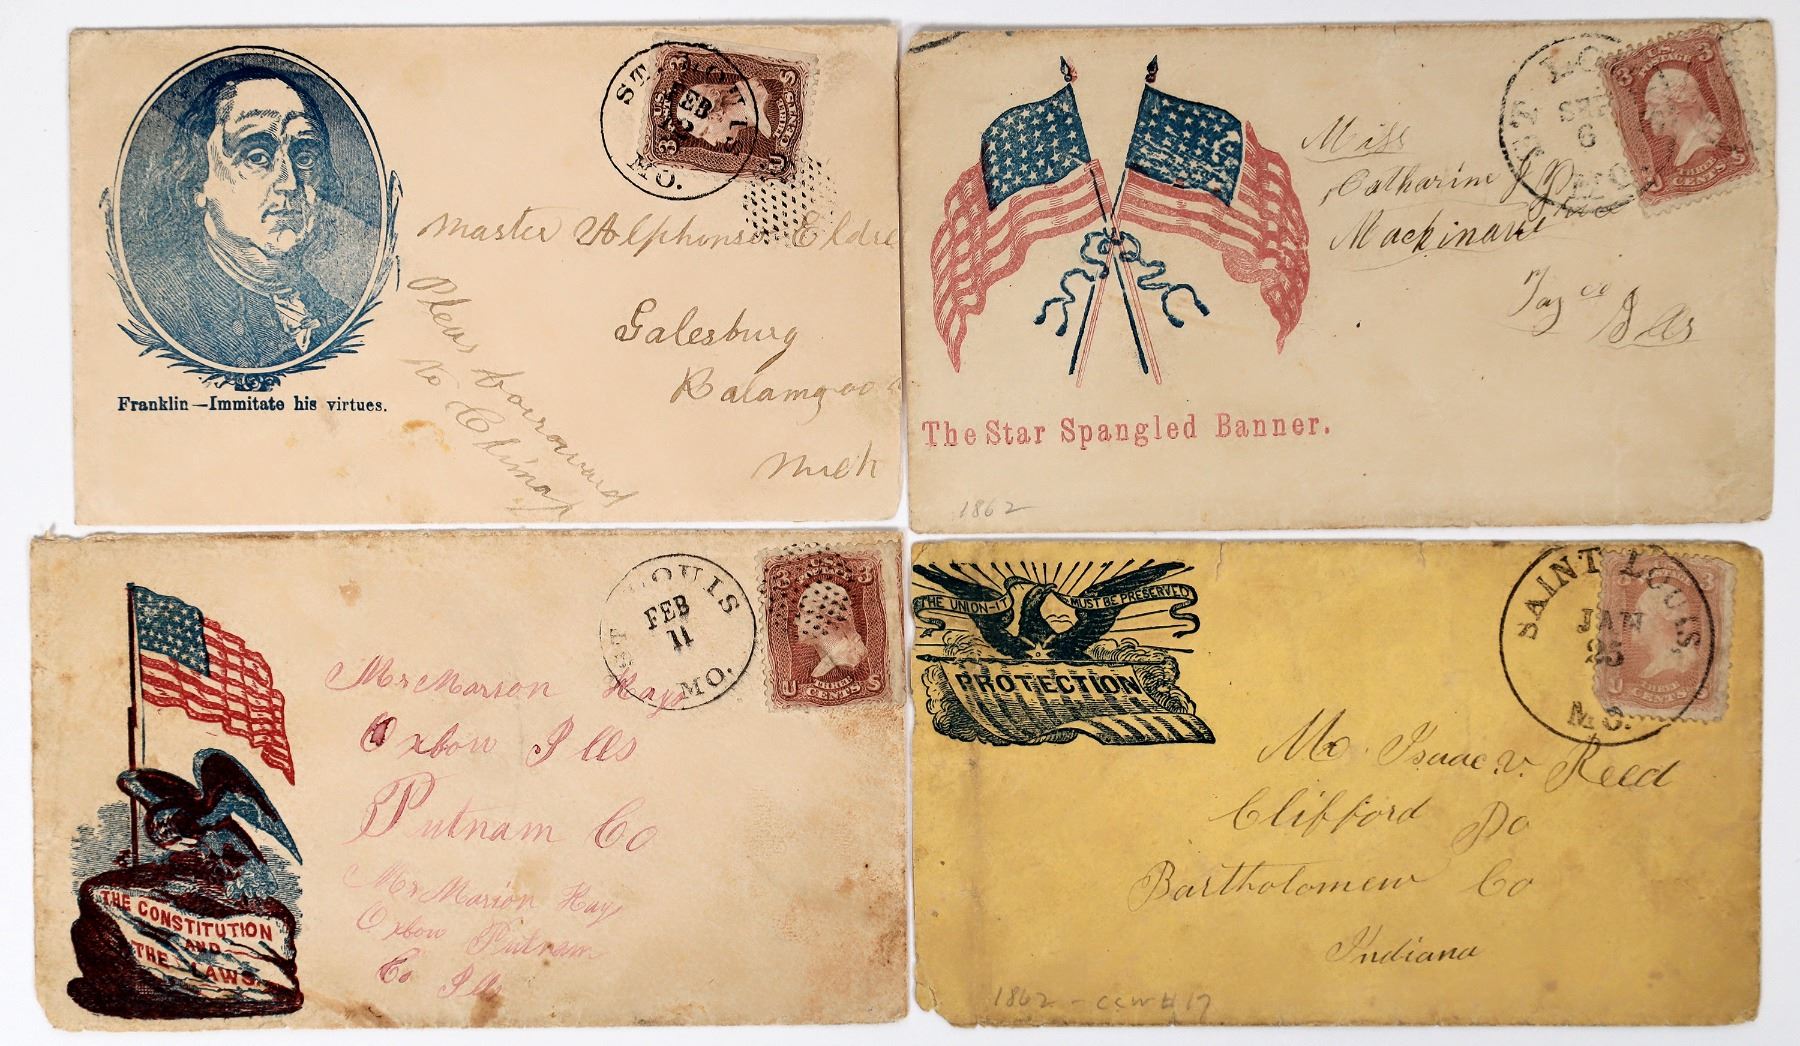 Franklin—Immitate his virtues.
ST. LOUIS
FEB
MO.
3 3
U
Master Alphonse Eldre
Galesburg
Kalamazoo
Mich
Pleas forward
to Climax
The Star Spangled Banner.
ST LO
SEP
6
MO
U.S. POSTAGE
3 3
THREE
CENTS
S
Miss
Catharine J
Mackinaw
Taz co
Ills
1862
THE CONSTITUTION
AND
THE LAWS
ST LOUIS
FEB
11
MO.
3 3
U THREE S
CENTS
Mr Marion Hays
Oxbow Ills
Putnam Co
Mr Marion Hays
Oxbow Putnam
Co Ills
THE UNION-IT MUST BE PRESERVED
PROTECTION
SAINT LOUIS,
JAN
25
MO.
3
U THREE
CENTS
Mr. Isaac V. Reed
Clifford Po
Bartholomew Co
Indiana
1862 - CCW # 17